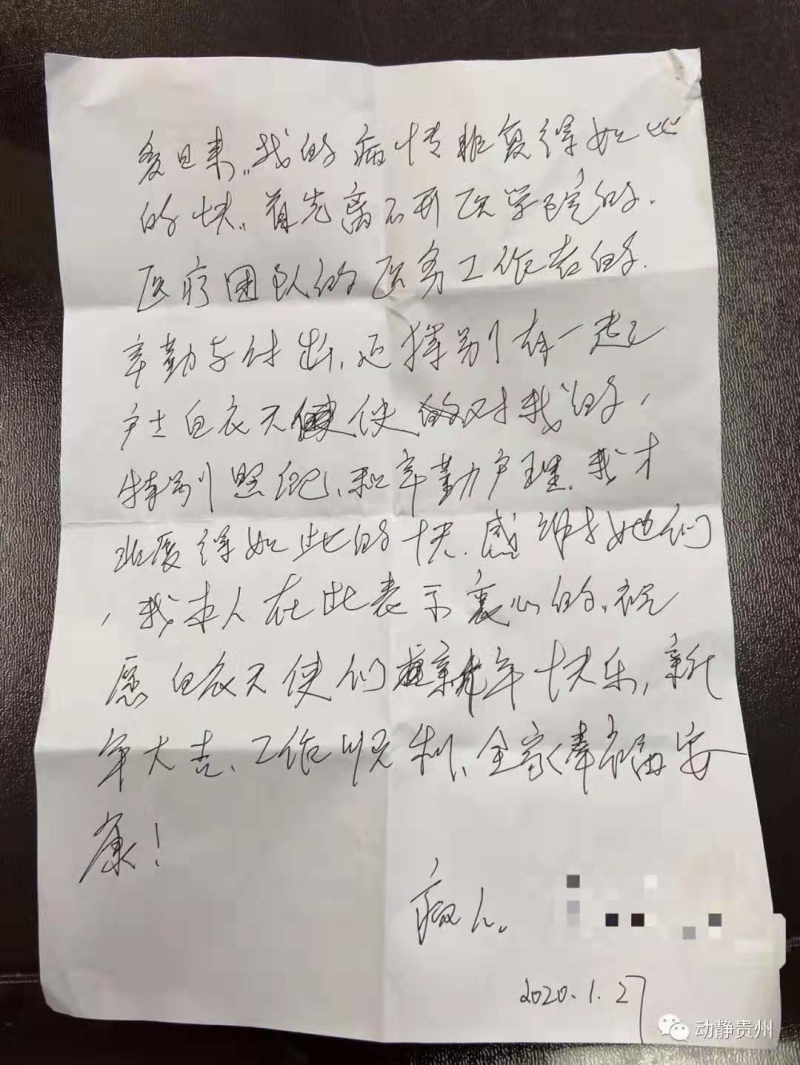 多日来，我的病情恢复得如此
的快，首先离不开医学院的
医疗团队的医务工作者的
辛勤与付出，还特别有一起
护士白衣天使的对我的，
特别照, 和辛勤护理，我才
恢复得如此的快，感谢她们
，我本人在此表示衷心的，祝
愿白衣天使们新年快乐，新
年大吉、工作顺利、全家幸福安
康！
病人。
2020.1.27
动静贵州